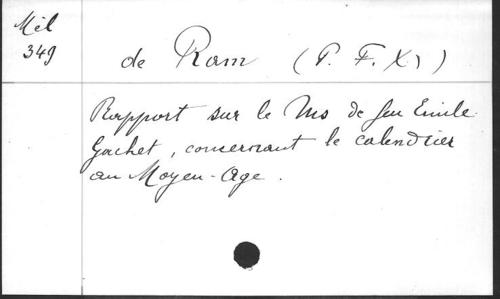 Mél
349
de Ram (P. F. X.)
Rapport sur le Ms de feu Emile
Gachet, concernant le calendrier
au Moyen-Age.